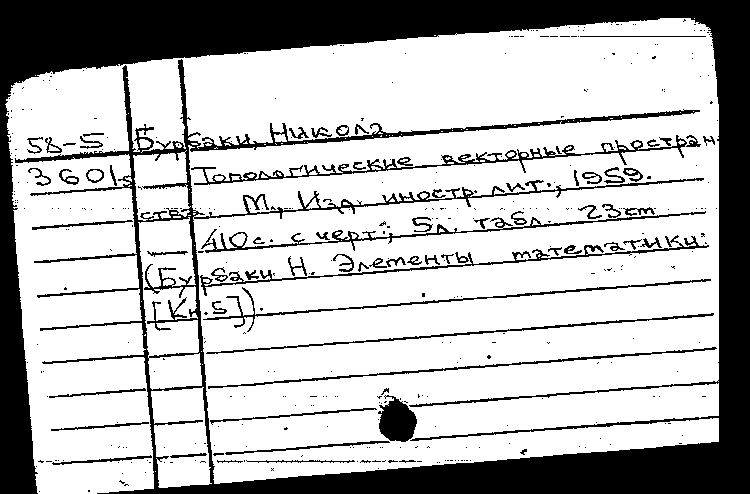 58-5 Бурбаки, Никола
3601s Топологические векторные простран-
ства. М., Изд. иностр. лит., 1959.
410с. с черт.; 5л. табл. 23см
(Бурбаки Н. Элементы математики.
[Кн.5]).